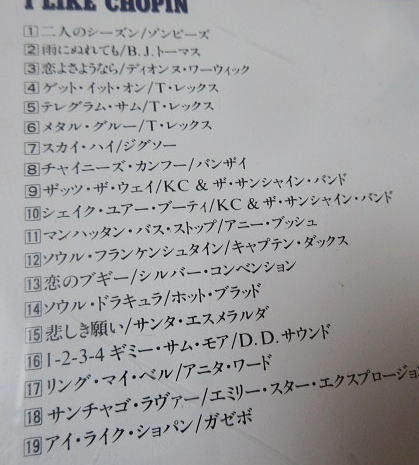 I LIKE CHOPIN
1 二人のシーズン/ゾンビーズ
2 雨にぬれても/B.J.トーマス
3 恋よさようなら/ディオンヌ・ワーウィック
4 ゲット・イット・オン/T・レックス
5 テレグラム・サム/T・レックス
6 メタル・グルー/T・レックス
7 スカイ・ハイ/ジグソー
8 チャイニーズ・カンフー/バンザイ
9 ザッツ・ザ・ウェイ/KC & ザ・サンシャイン・バンド
10 シェイク・ユアー・ブーティ/KC & ザ・サンシャイン・バンド
11 マンハッタン・バス・ストップ/アニー・ブッシュ
12 ソウル・フランケンシュタイン/キャプテン・ダックス
13 恋のブギー/シルバー・コンベンション
14 ソウル・ドラキュラ/ホット・ブラッド
15 悲しき願い/サンタ・エスメラルダ
16 1-2-3-4 ギミー・サム・モア/D.D.サウンド
17 リング・マイ・ベル/アニタ・ワード
18 サンチャゴ・ラヴァー/エミリー・スター・エクスプロージョ
19 アイ・ライク・ショパン/ガゼボ